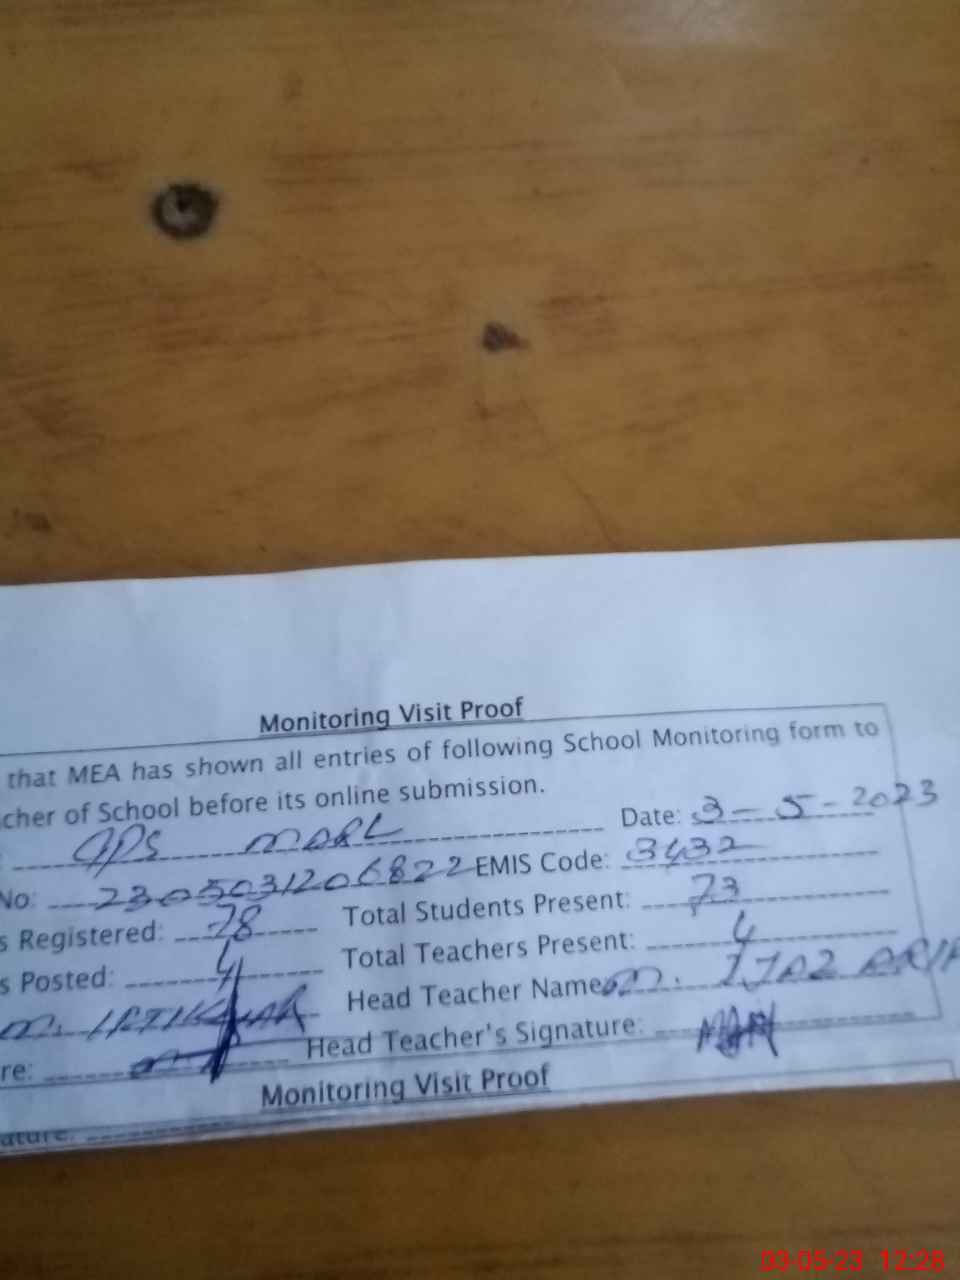 Monitoring Visit Proof
that MEA has shown all entries of following School Monitoring form to
cher of School before its online submission.
GPS MARL Date: 3-5-2023
No: 2305031206822 EMIS Code: 3432
s Registered: 78 Total Students Present: 73
s Posted: 4 Total Teachers Present: 4
M. IFTIKHAR Head Teacher Name M. IJAZ ARIF
re: Head Teacher's Signature:
Monitoring Visit Proof
ature:
03-05-23 12:28